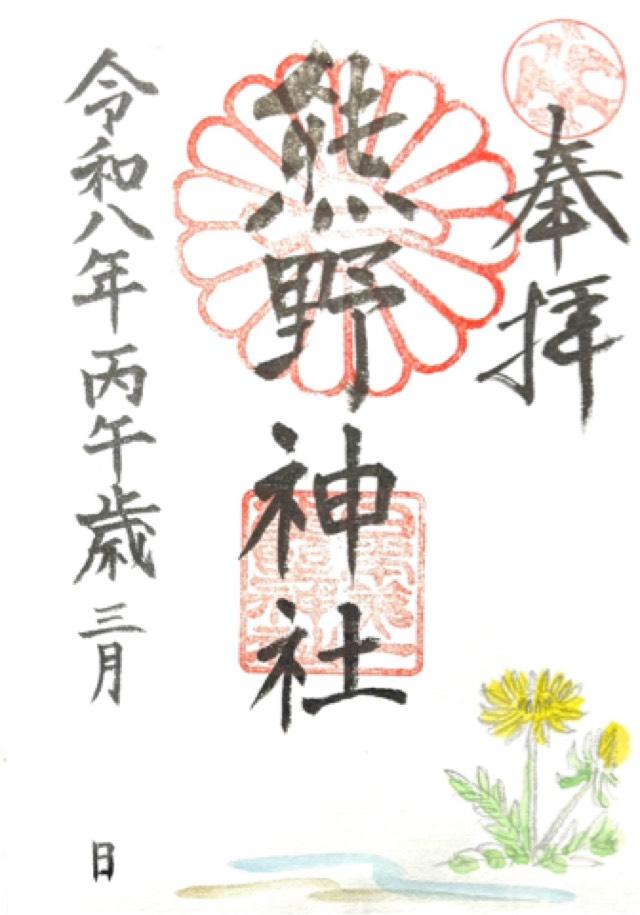 奉拝
熊野神社
令和八年 丙午歳 三月 日